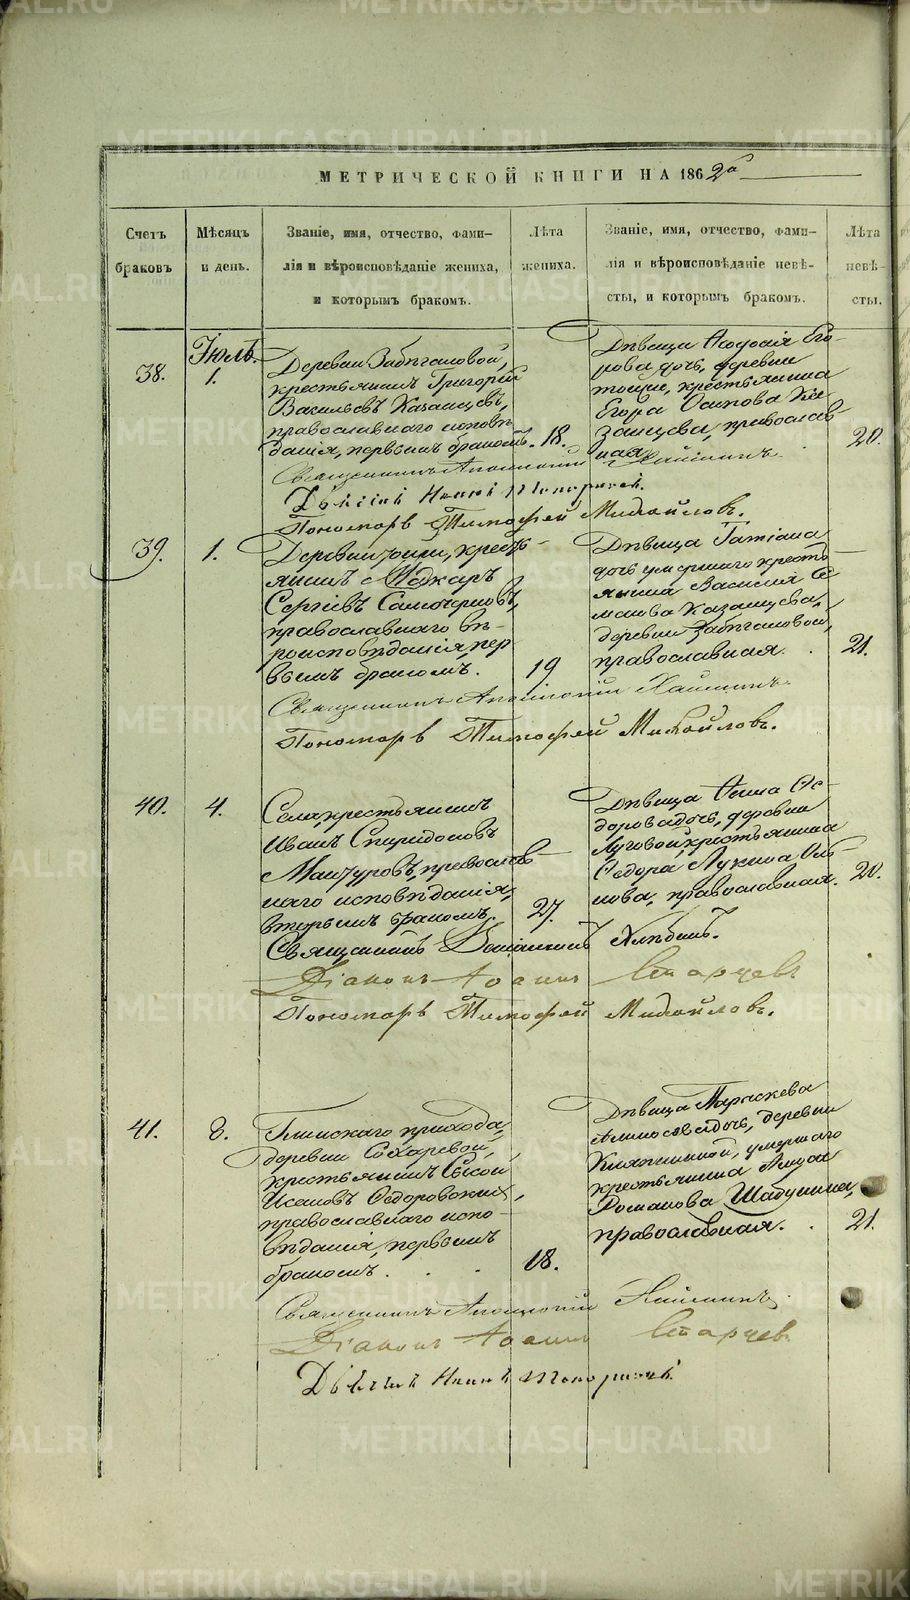 МЕТРИЧЕСКОЙ КНИГИ НА 1862й
Счетъ браковъ
Мѣсяцъ и день.
Званіе, имя, отчество, фами-
лія и вѣроисповѣданіе жениха,
и которымъ бракомъ.
Лѣта жениха.
Званіе, имя, отчество, фами-
лія и вѣроисповѣданіе невѣ-
сты, и которымъ бракомъ.
Лѣта невѣ-
сты.
38.
Іюль.
1.
Деревни
крестьянинъ Григорій
Васильевъ Казанцевъ,
православнаго исповѣ-
данія, первымъ бракомъ.
18.
Дѣвица Ѳеодосія Его-
рова дочь, деревни
тойже, крестьянина
Егора Осипова Ка-
занцева, православ-
ная.
20.
Священникъ
Пономарь Тимофей Михайловъ.
39.
1.
Деревни тойже, кресть-
янинъ Макаръ
Сергіевъ
православнаго вѣ-
роисповѣданія, пер
вымъ бракомъ.
19
Дѣвица Татіана
дочь умершаго кресть
янина Василія Се
Казанцева,
деревни
православная.
21.
Священникъ
Пономарь Тимофей Михайловъ.
40.
4.
Села, крестьянинъ
Иванъ Спиридоновъ
Манчуровъ, православ-
наго исповѣданія,
вторымъ бракомъ.
27.
Дѣвица Анна Ѳе-
дорова дочь, деревни
Луговой, крестьянина
Ѳедора Лукина
православная.
20.
Священникъ Хлѣбинъ.
Діаконъ Іоаннъ Старцевъ
Пономарь Тимофей Михайловъ.
41.
8.
Глинскаго прихода,
деревни Сохаревой,
крестьянинъ Сысой
Исаковъ Ѳедоровскихъ,
православнаго испо-
вѣданія, первымъ
бракомъ.
18.
Дѣвица Параскева
дочь, деревни
умершаго
крестьянина
Романова Шабунина,
православная.
21.
Священникъ
Діаконъ Іоаннъ Старцевъ
METRIKI.GASO-URAL.RU